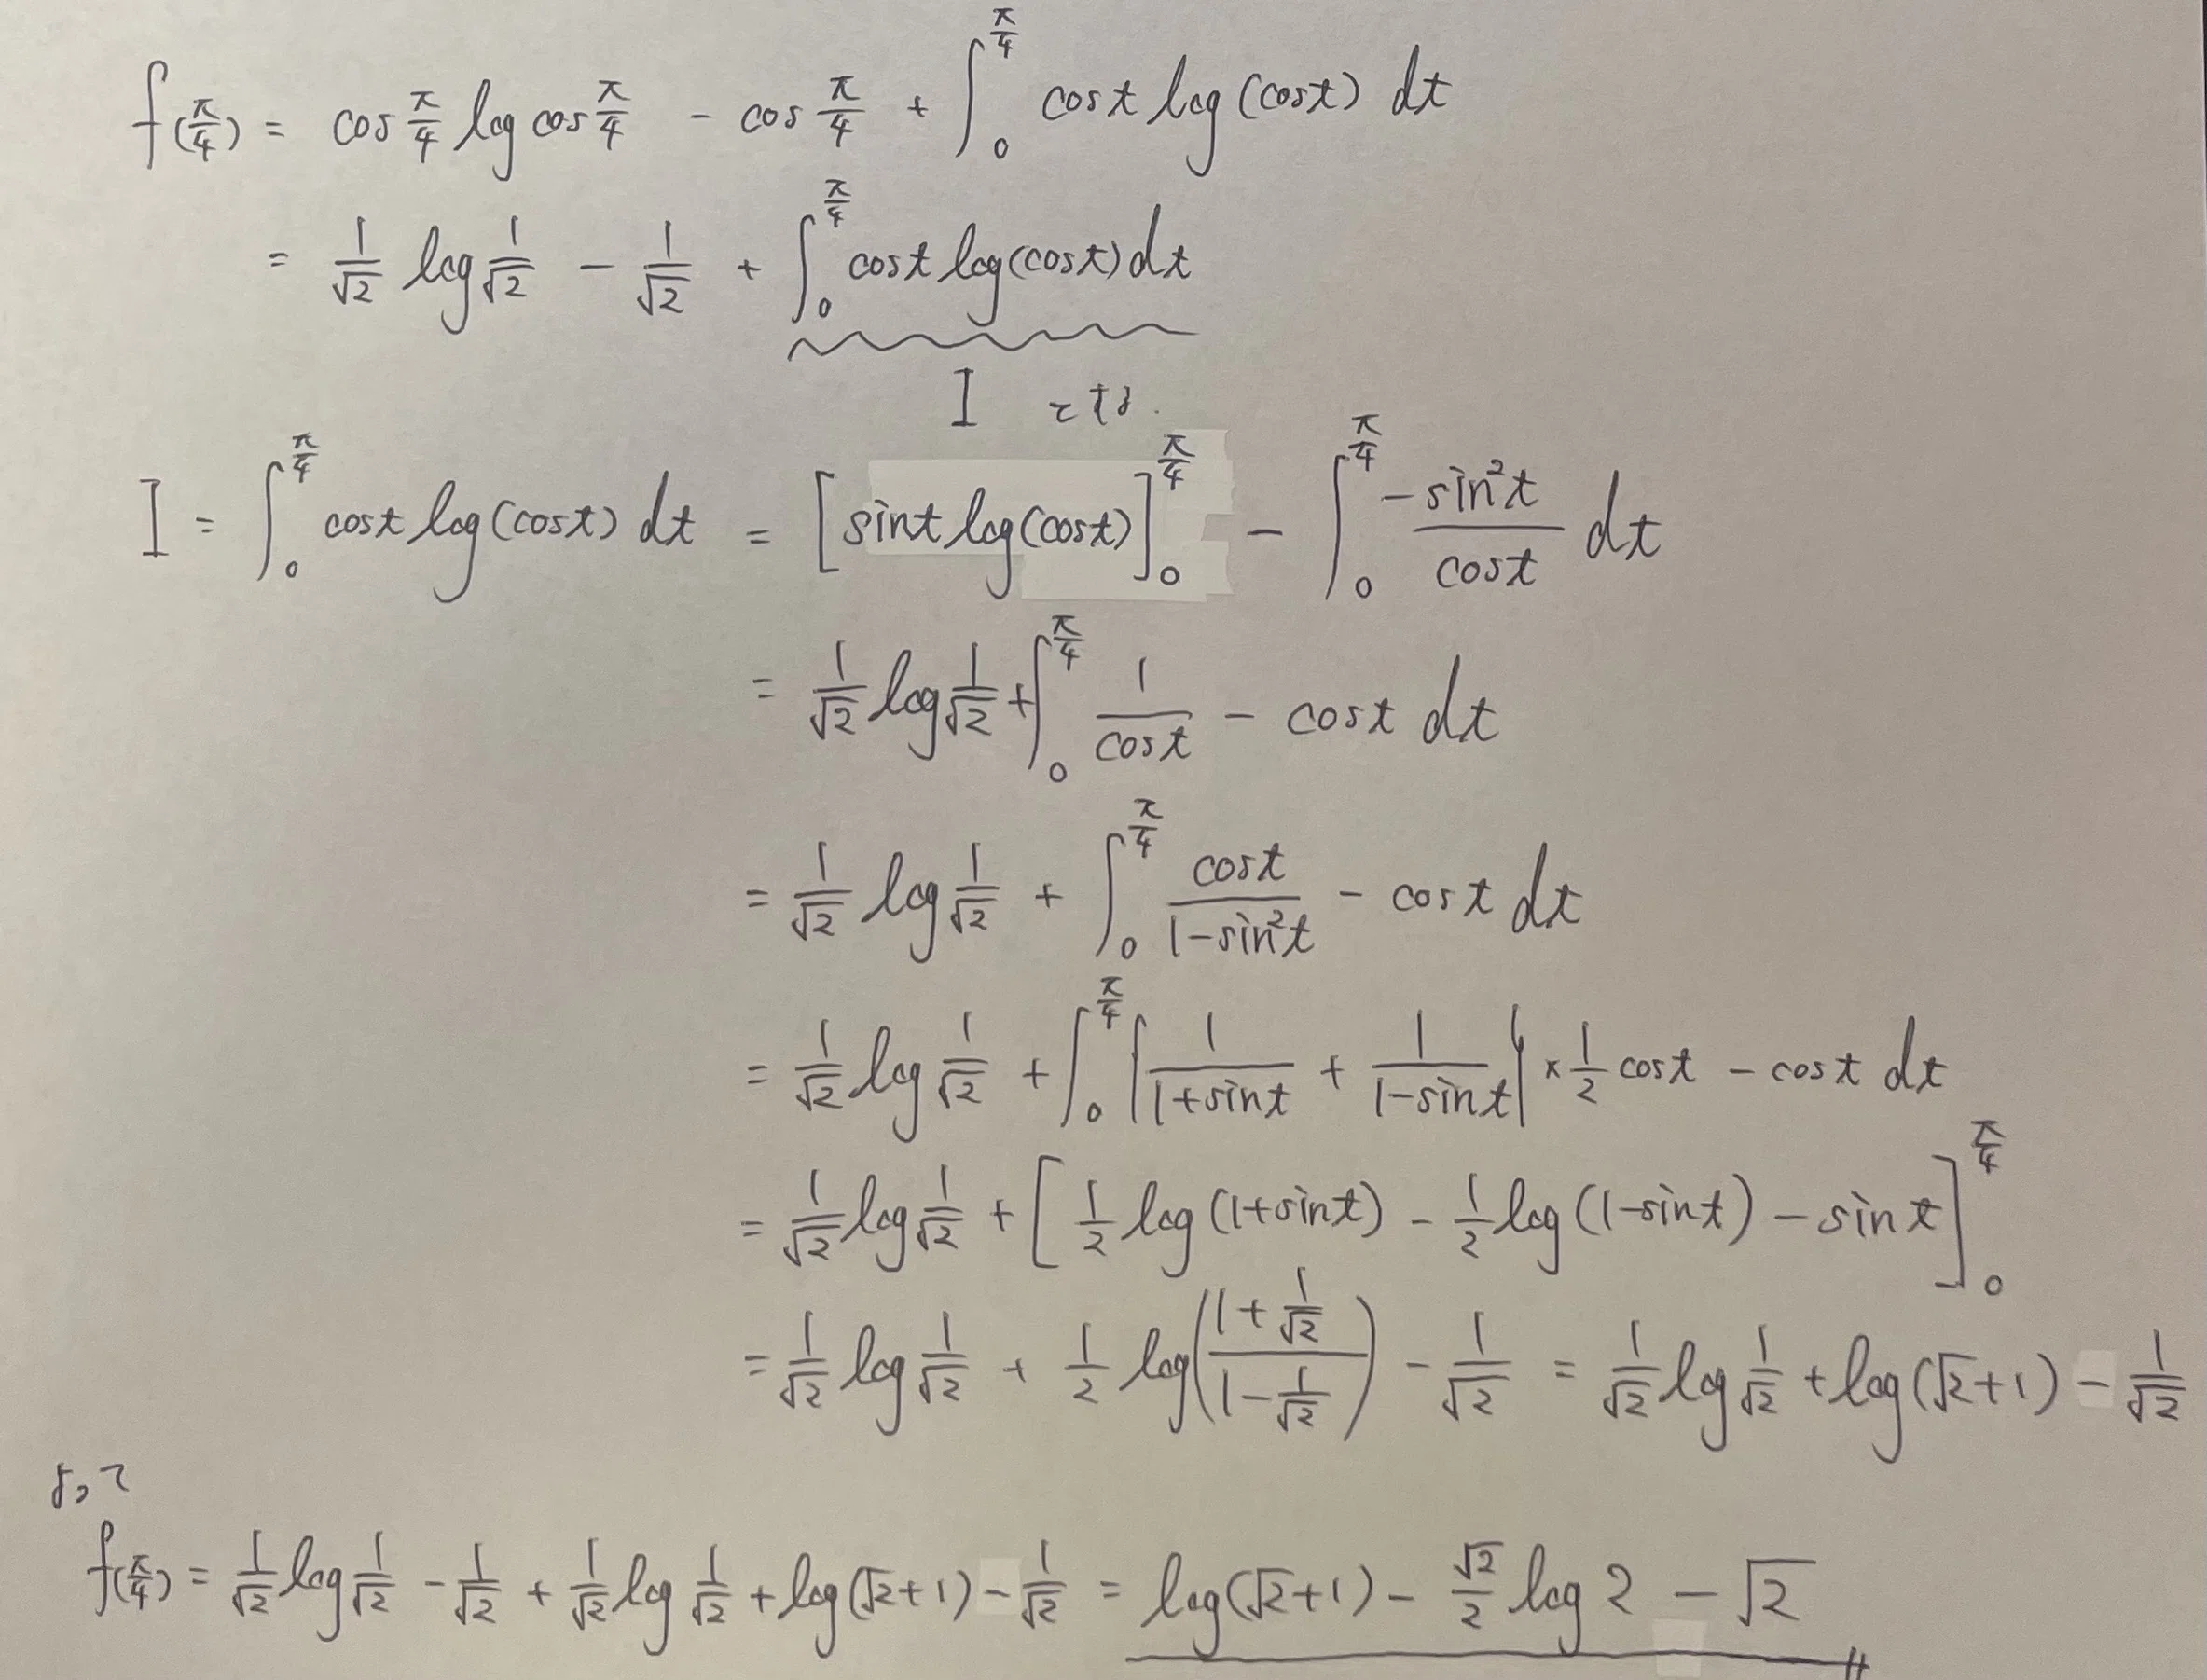 f(π/4) = cos π/4 log cos π/4 - cos π/4 + ∫_0^{π/4} cos t log(cos t) dt
= 1/√2 log 1/√2 - 1/√2 + ∫_0^{π/4} cos t log(cos t) dt
I とする.
I = ∫_0^{π/4} cos t log(cos t) dt = [sin t log(cos t)]_0^{π/4} - ∫_0^{π/4} (-sin²t)/(cos t) dt
= 1/√2 log 1/√2 + ∫_0^{π/4} 1/(cos t) - cos t dt
= 1/√2 log 1/√2 + ∫_0^{π/4} (cos t)/(1-sin²t) - cos t dt
= 1/√2 log 1/√2 + ∫_0^{π/4} {1/(1+sin t) + 1/(1-sin t)} × 1/2 cos t - cos t dt
= 1/√2 log 1/√2 + [1/2 log(1+sin t) - 1/2 log(1-sin t) - sin t]_0^{π/4}
= 1/√2 log 1/√2 + 1/2 log((1+1/√2)/(1-1/√2)) - 1/√2 = 1/√2 log 1/√2 + log(√2+1) - 1/√2
よって
f(π/4) = 1/√2 log 1/√2 - 1/√2 + 1/√2 log 1/√2 + log(√2+1) - 1/√2 = log(√2+1) - √2/2 log 2 - √2